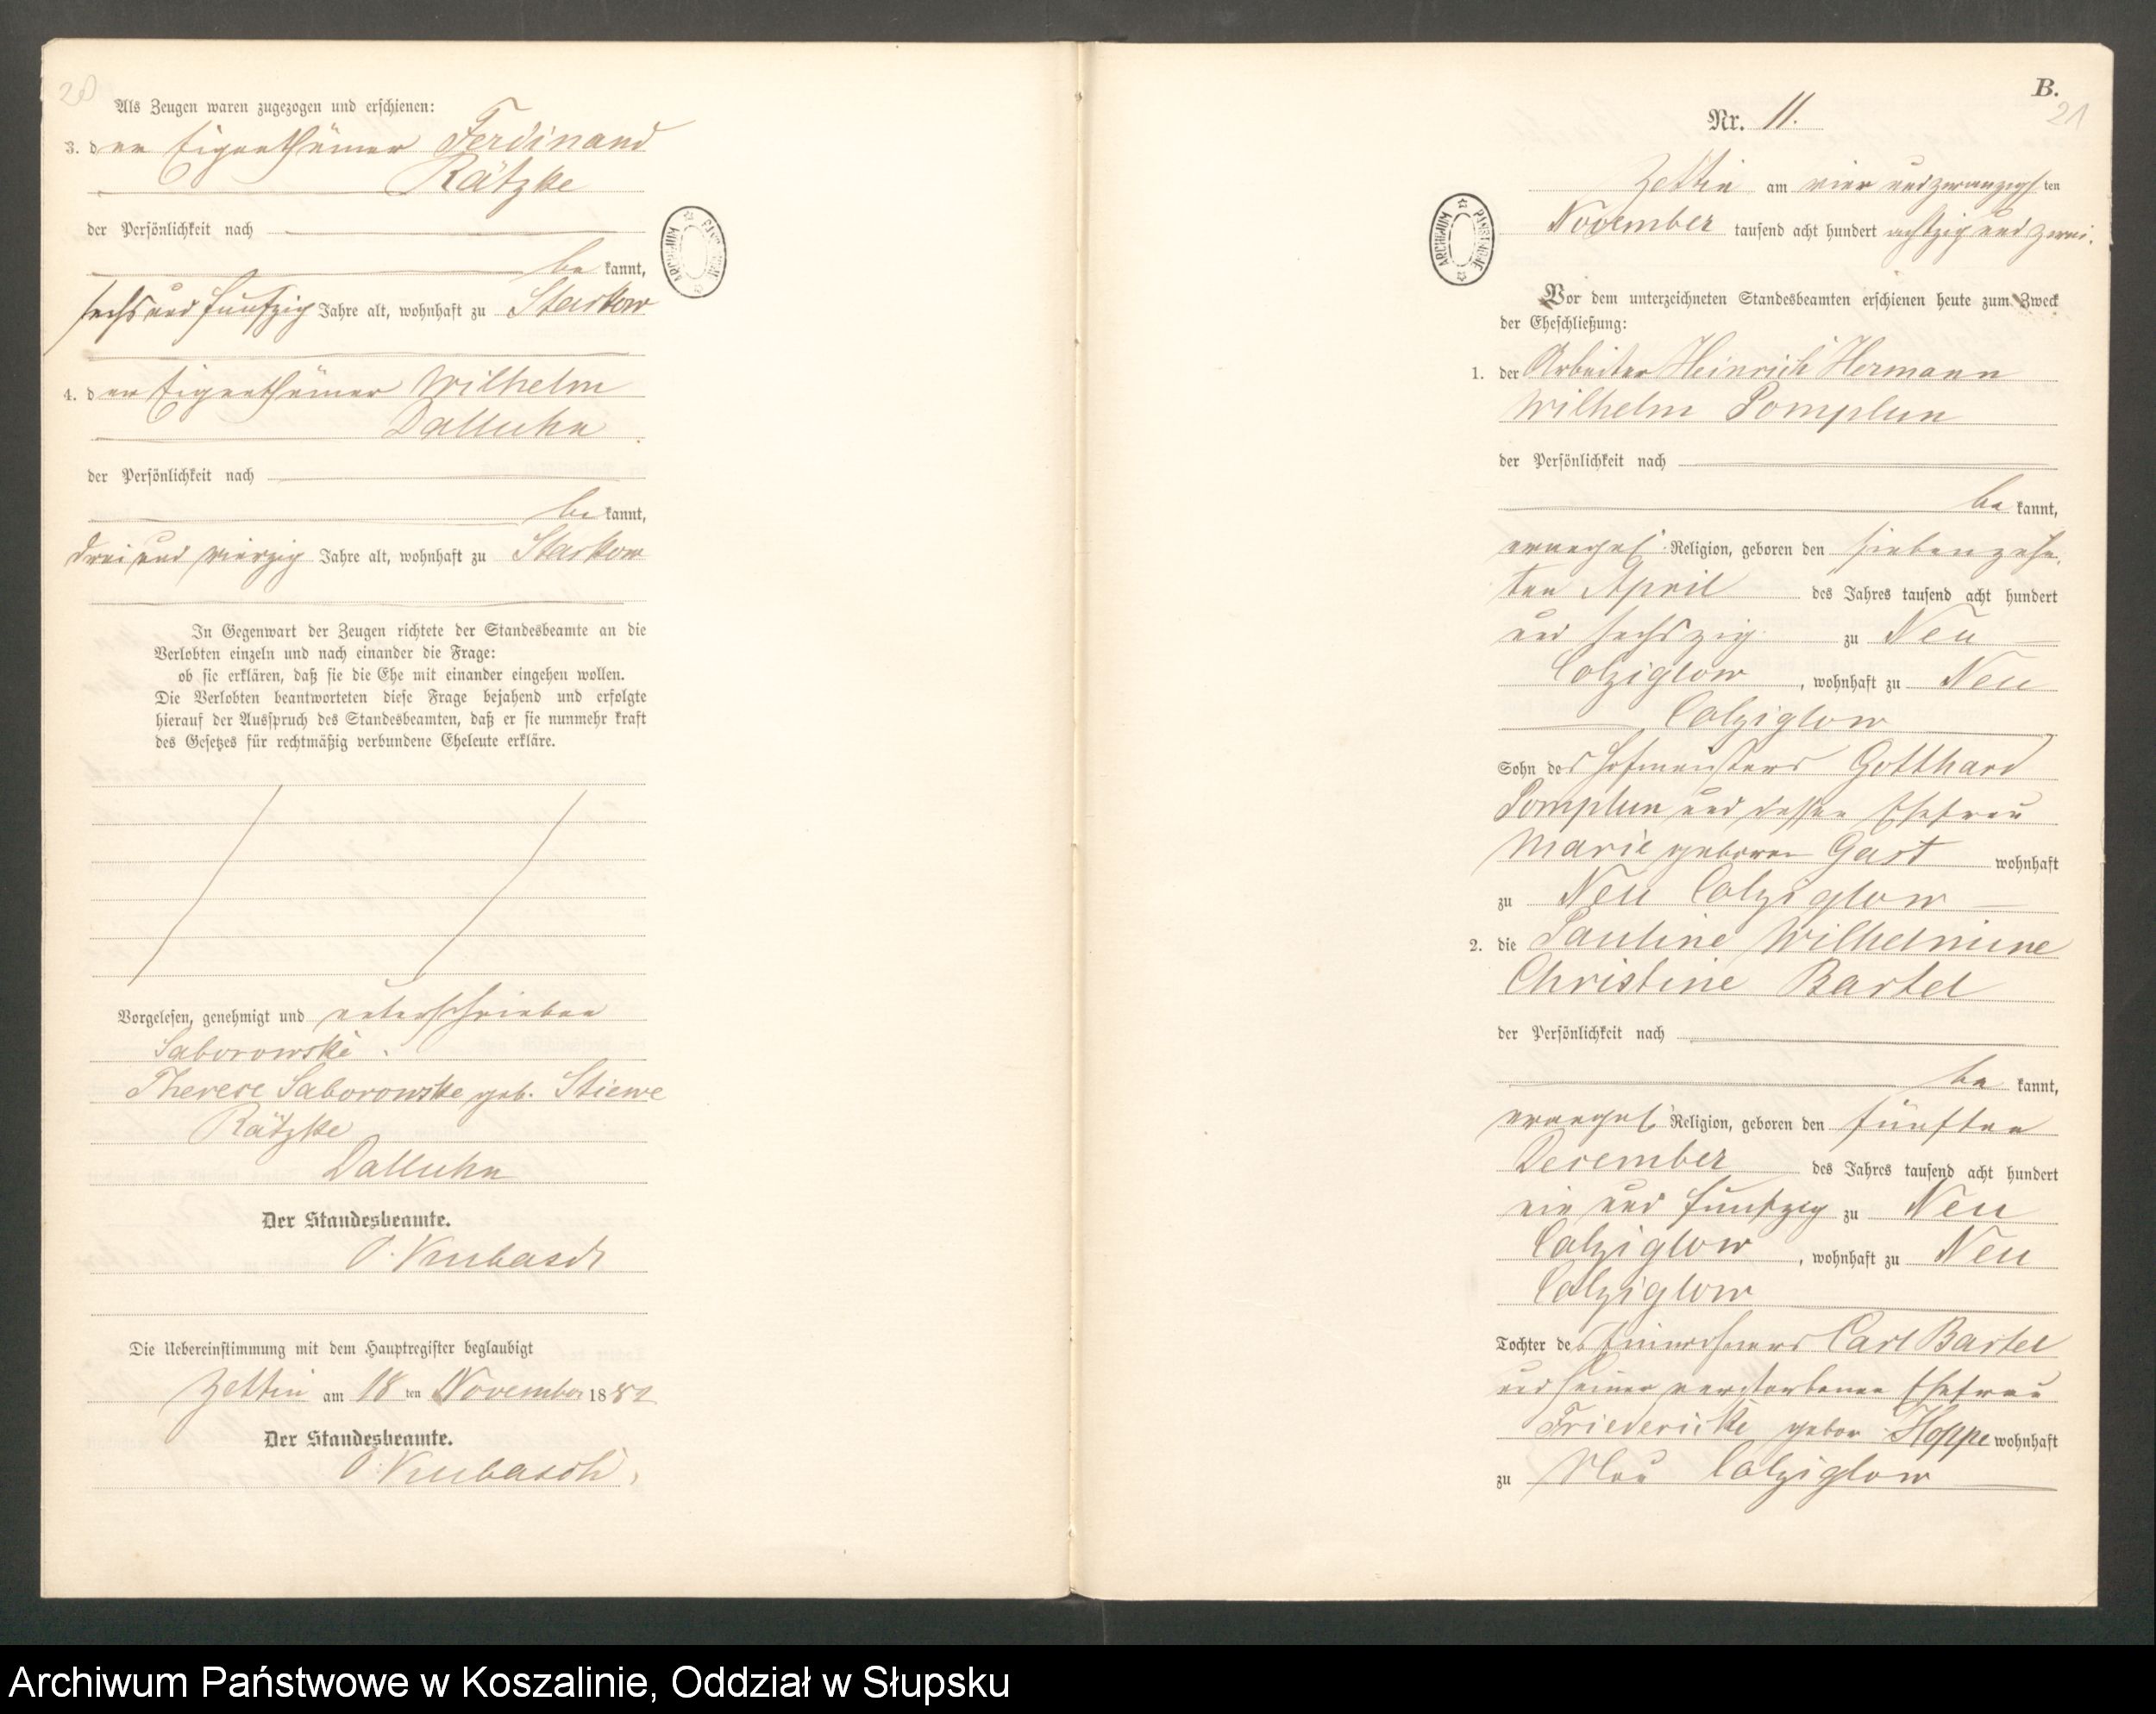 20
Als Zeugen waren zugezogen und erschienen:
3. der Eigenthümer Ferdinand
Rätzke
der Persönlichkeit nach
be kannt,
sechs und funfzig Jahre alt, wohnhaft zu Starkow
4. der Eigenthümer Wilhelm
Dalluhn
der Persönlichkeit nach
be kannt,
drei und vierzig Jahre alt, wohnhaft zu Starkow
In Gegenwart der Zeugen richtete der Standesbeamte an die
Verlobten einzeln und nach einander die Frage:
ob sie erklären, daß sie die Ehe mit einander eingehen wollen.
Die Verlobten beantworteten diese Frage bejahend und erfolgte
hierauf der Ausspruch des Standesbeamten, daß er sie nunmehr kraft
des Gesetzes für rechtmäßig verbundene Eheleute erkläre.
Vorgelesen, genehmigt und unterschrieben
Saborowske
Therese Saborowske geb. Stiewe
Rätzke
Dalluhn
Der Standesbeamte.
O. Knubasch
Die Uebereinstimmung mit dem Hauptregister beglaubigt
Zettin am 18 ten November 1882
Der Standesbeamte.
O. Knubasch
B.
21
Nr. 11.
Zettin am vier und zwanzigsten
November tausend acht hundert achtzig und zwei.
Vor dem unterzeichneten Standesbeamten erschienen heute zum Zweck
der Eheschließung:
1. der Arbeiter Heinrich Hermann
Wilhelm Pomplun
der Persönlichkeit nach
be kannt,
evangel. Religion, geboren den siebenzehn
ten April des Jahres tausend acht hundert
und sechszig zu Neu
Colziglow, wohnhaft zu Neu
Colziglow
Sohn des Hofmeisters Gotthard
Pomplun und dessen Ehefrau
Marie geboren Gast wohnhaft
zu Neu Colziglow
2. die Pauline Wilhelmine
Christine Bartel
der Persönlichkeit nach
be kannt,
evangel. Religion, geboren den fünften
December des Jahres tausend acht hundert
ein und funfzig zu Neu
Colziglow, wohnhaft zu Neu
Colziglow
Tochter des Einwohners Carl Bartel
und seiner verstorbenen Ehefrau
Friedericke gebor Hoppe wohnhaft
zu Neu Colziglow
ARCHIWUM PAŃSTWOWE
ARCHIWUM PAŃSTWOWE
Archiwum Państwowe w Koszalinie, Oddział w Słupsku